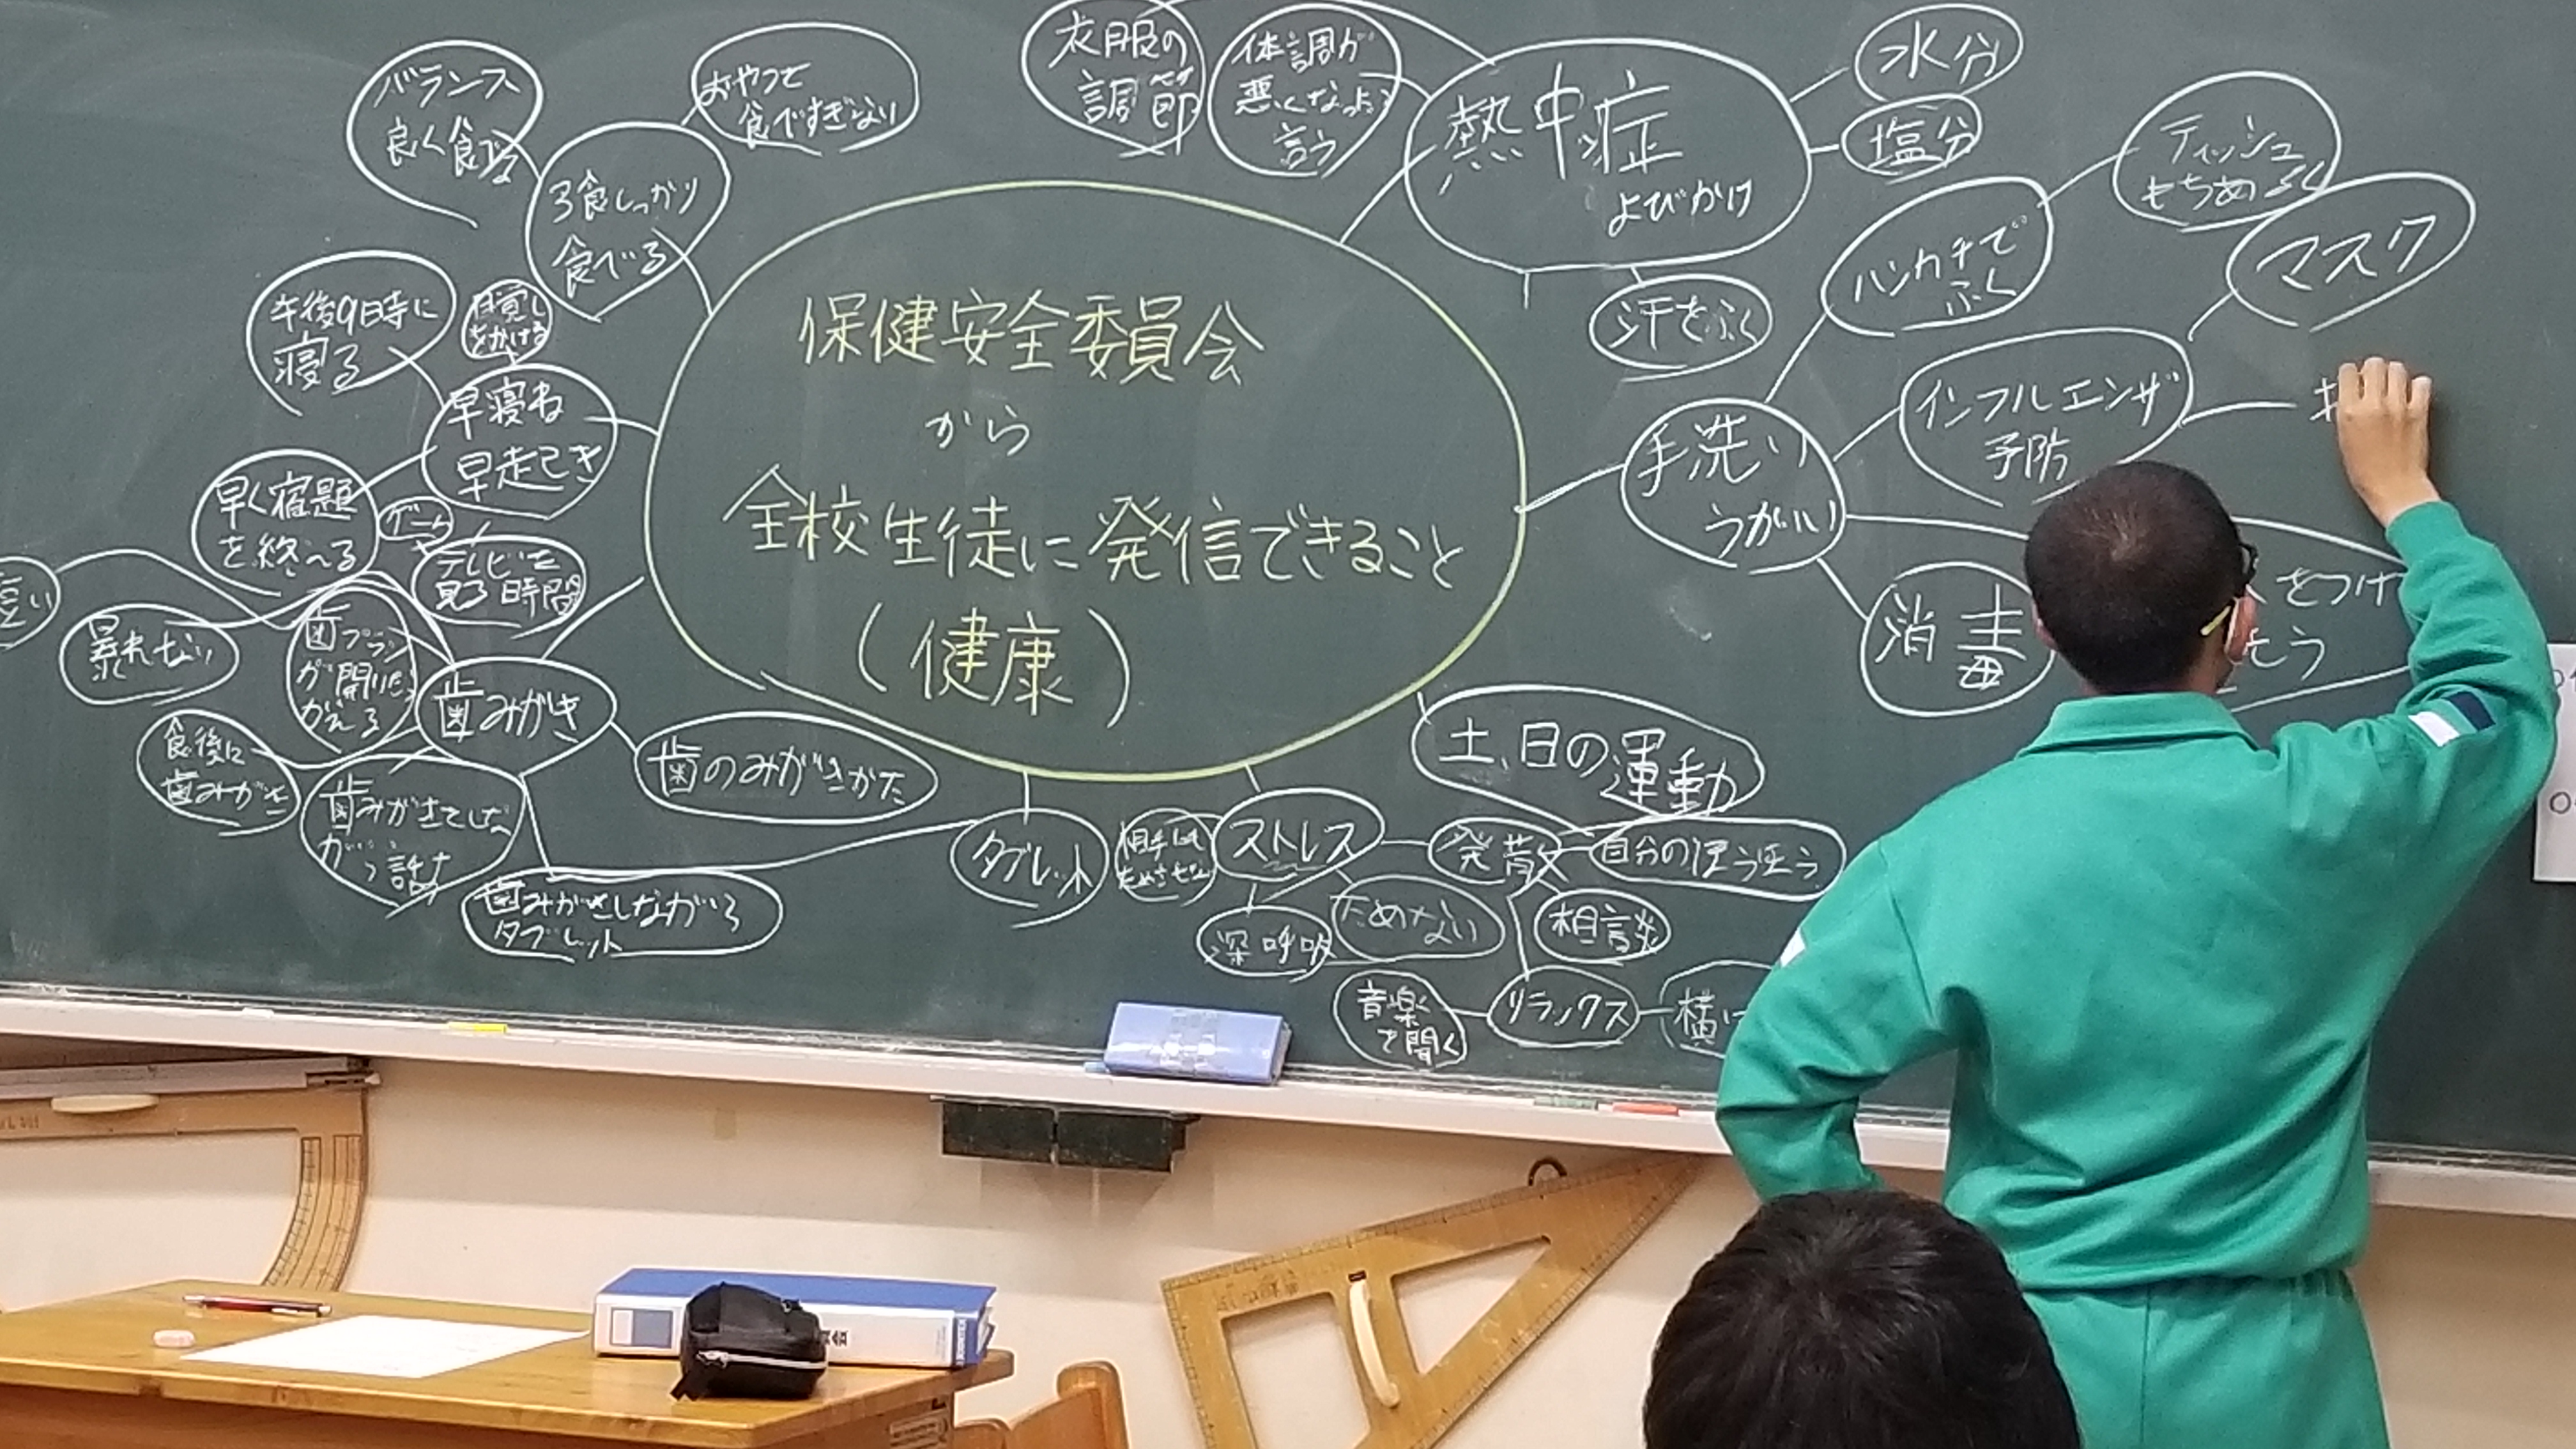 保健安全委員会
から
全校生徒に発信できること
(健康)
バランス
良く食べる
おやつを
食べすぎない
3食しっかり
食べる
午後9時に
寝る
目覚し
をかける
早寝ね
早起き
早く宿題
を終へる
ゲーム
テレビを
見る時間
暴れない
歯ブラシ
が開いたら
かえる
歯みがき
食後に
歯みがき
歯のみがきかた
歯みがきしながら
タブレット
タブレット
衣服の
調節
体調が
悪くなったら
言う
熱中症
よびかけ
水分
塩分
汗をふく
ティッシュ
もちあるく
ハンカチで
ふく
マスク
インフルエンザ
予防
手洗い
うがい
消毒
をつけ
そう
土、日の運動
ストレス
ためない
深呼吸
発散
相談
リランクス
音楽
で聞く
横に